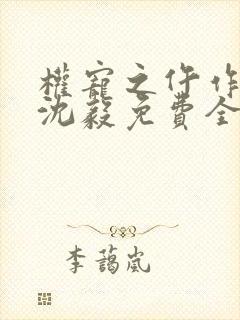 權寵之仵作
沈毅免費全
李藹嵐